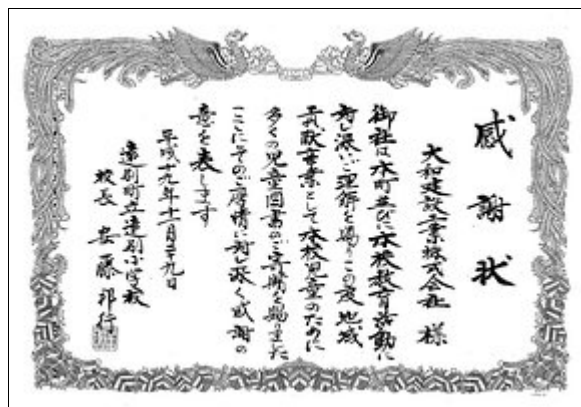 感謝状
大和建設工業株式会社 様
御社は本町並びに本校教育活動に
対し深いご理解を賜りこの度地域
貢献事業として本校児童のために
多くの児童図書のご寄贈を賜りました
ここにそのご厚情に対し深く感謝の
意を表します
平成十九年十二月二十九日
遠別町立遠別小学校
校長 安藤邦行